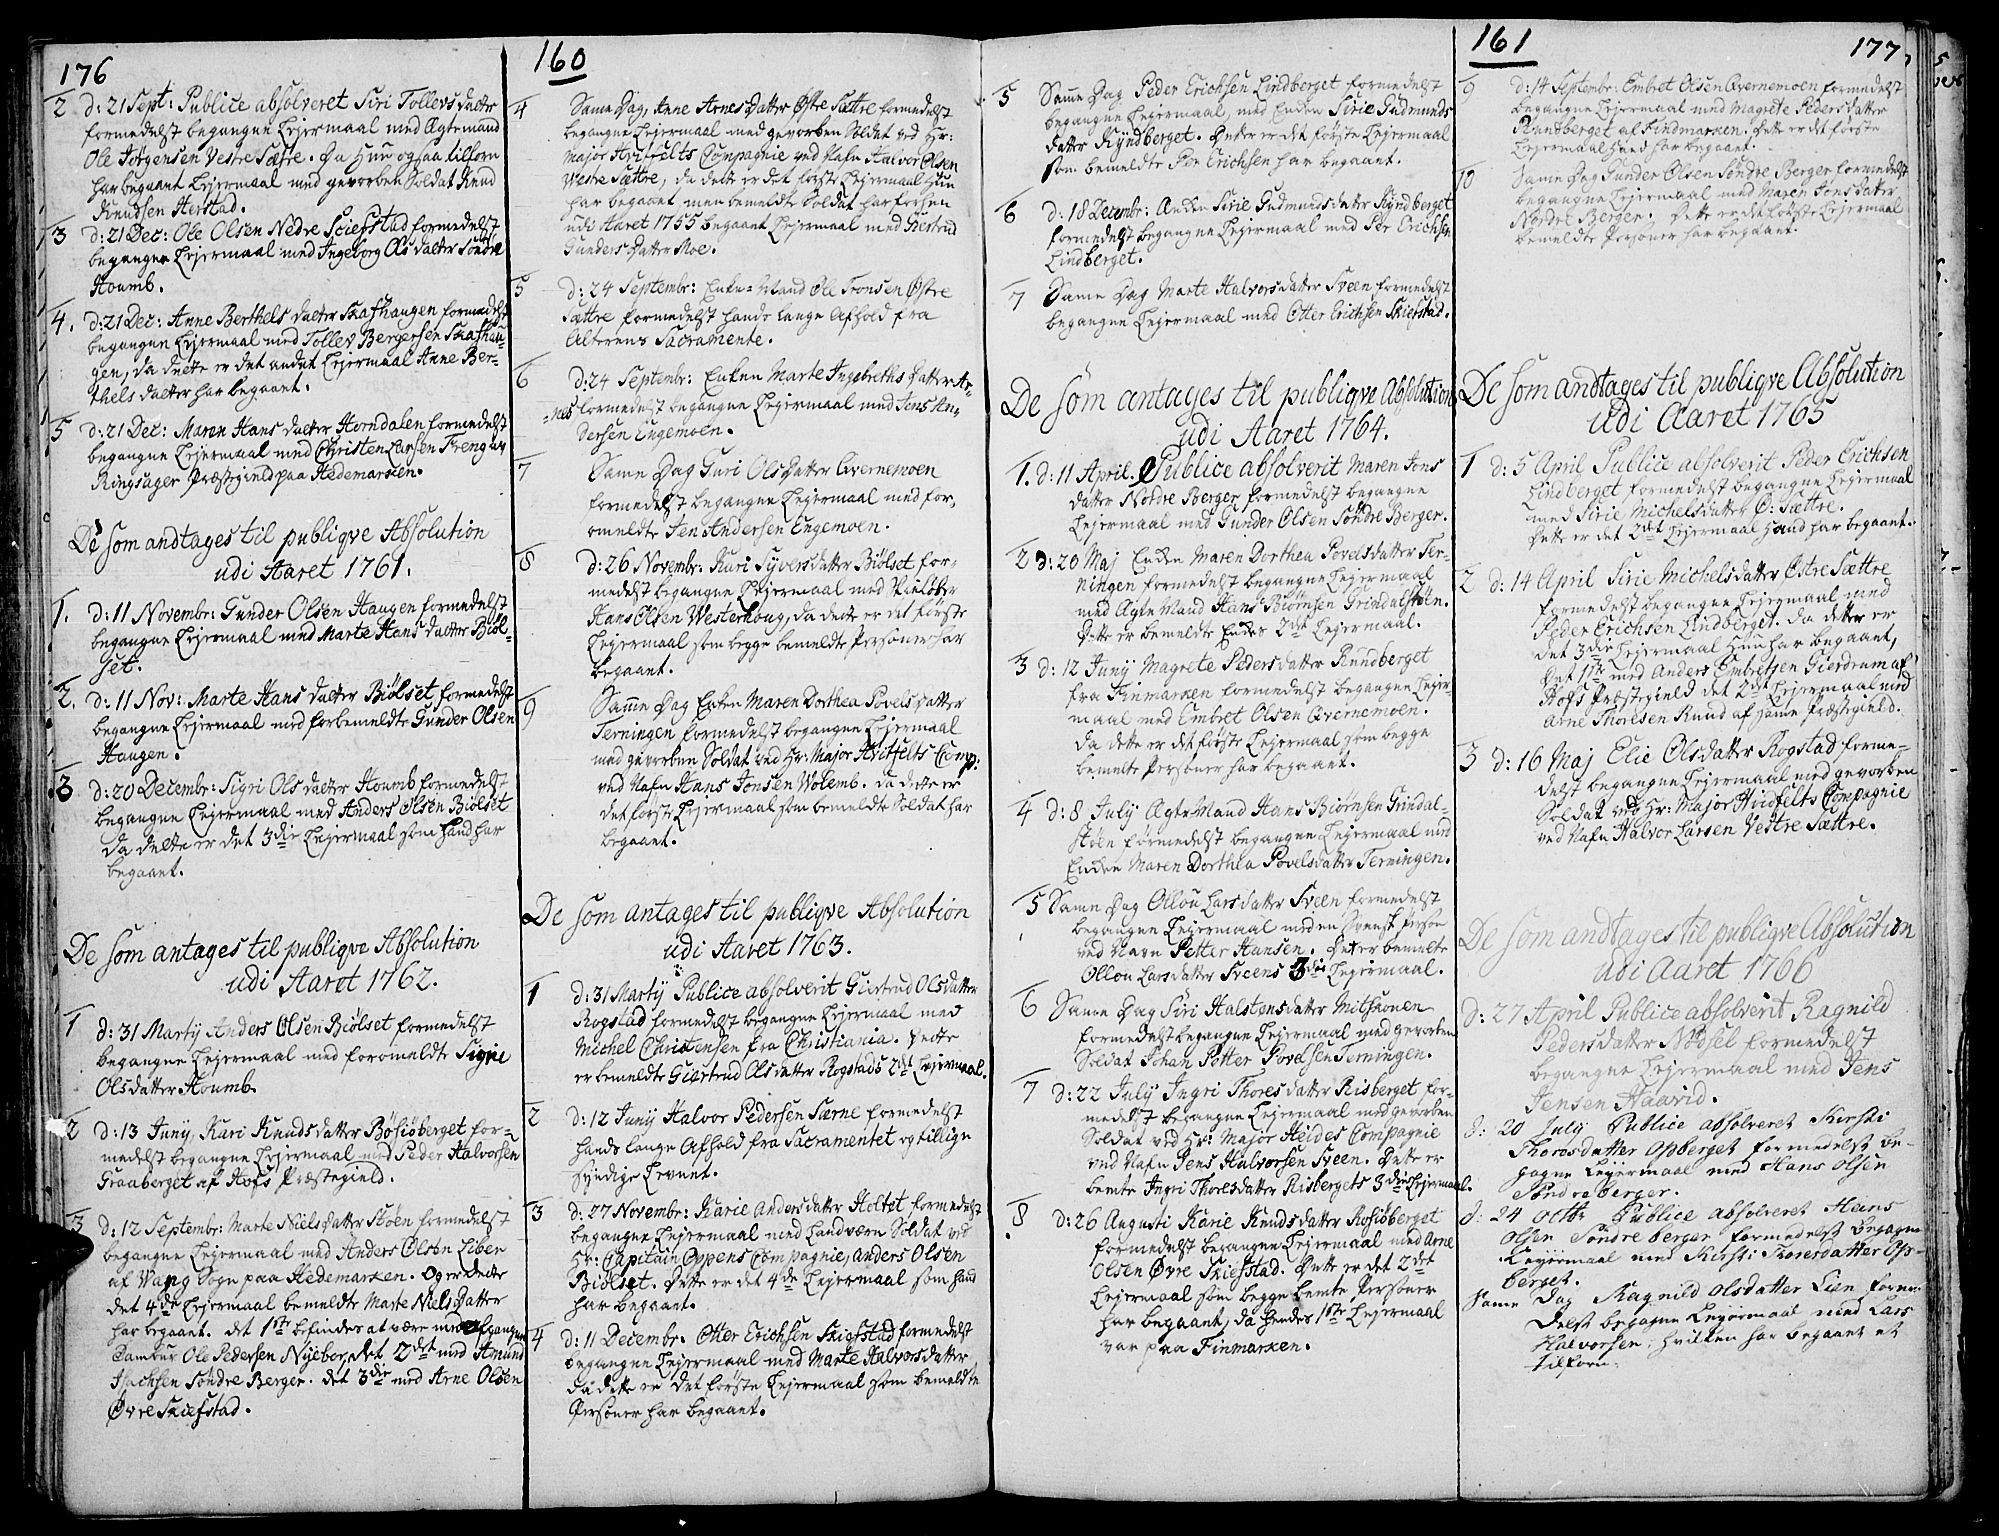 176
2 d: 21 Sept: Publice absolveret Siri Tollevsdatter
formedelst begangne Lejermaal med Ægtemand
Ole Jørgensen Vestre Sætre. Da Hun ogsaa tilforn
har begaaet Lejermaal med gevorben Soldat Knud
Knudsen Herstad.
3 d: 21 Dec: Ole Olsen Nedre Skiefstad formedelst
begangne Lejermaal med Ingeborg Olsdatter Søndre
Houmb.
4. d: 21 Dec: Anne Berthelsdatter Skafhaugen formedelst
begangne Lejermaal med Tollev Bergersen Skafhau-
gen, da dette er det andet Lejermaal Anne Ber-
thelsdatter har begaaet.
5 d: 21 Dec: Maren Hansdatter Horndalen formedelst
begangne Lejermaal med Christen Larsen Freng av
Ringsager Præstegield paa Hedemarken.
De som andtages til publiqve Absolution
udi Aaret 1761.
1. d: 11 Novembr: Gunder Olsen Haugen formedelst
begangne Lejermaal med Marte Hansdatter Biøl-
set.
2. d: 11 Nov: Marte Hansdatter Biølset formedelst
begangne Lejermaal med forbemeldte Gunder Olsen
Haugen.
3 d: 20 Decembr: Sigri Olsdatter Houmb formedelst
begangne Lejermaal med Anders Olsen Biølset
da dette er det 3die Lejermaal som hand har
begaaet.
De som antages til publiqve Absolution
udi Aaret 1762.
1 d: 31 Martij Anders Olsen Biølset formedelst
begangne Lejermaal med foromeldte Sigrie
Olsdatter Houmb.
2 d: 13 Junij, Kari Knudsdatter Bøsiøberget for-
medelst begangne Lejermaal med Peder Halvorsen
Graaberget af Hofs Præstegield.
3 d: 12 Septembr: Marte Nielsdatter Støen formedelst
begangne Lejermaal med Anders Olsen Liben
af Wang Sogn paa Hedemarken. Og er dette
det 4de Lejermaal bemeldte Marte Nielsdatter
har begaaet. det 1ste befindes at være med afgangne
Tambur Ole Pedersen Nyebor, det 2det med Amund
Isachsen Søndre Berger. det 3die med Arne Olsen
Øvre Skiefstad.
160
4 Same Dag, Anne Arnesdatter Østre Sættre formedelst
begangne Lejermaal med gevorben Soldat ved Hr:
Major Hvitfelts Compagnie ved Nafn Halvor Olsen
Westre Sættre, da dette er det første Lejermaal Hun
har begaaet men bemeldte Soldat har forhen
udi Aaret 1755 begaaet Lejermaal med Giertrud
Gundersdatter Moe.
5 d: 24 Septembr: Enke-Mand Ole Tronsen Østre
Sættre formedelst hands lange Afhold fra
Alterens Sacramente.
6 d: 24 Septembr: Enken Marte Ingebrethsdatter Ar-
-næs formedelst begangne Lejermaal med Jens An-
dersen Engemoen.
7 Same Dag Guri Olsdatter Qvernemoen
formedelst begangne Lejermaal med for,
omeldte Jen Andersen Engemoen.
8 d: 26 Novembr: Kari Syversdatter Biølset for-
medelst begangne Lejermaal med Skieløber
Hans Olsen Westerhoug, da dette er det første
Lejermaal som begge bemeldte Personer har
begaaet.
9 Same Dag Enken Maren Dorthea Povelsdatter
Terningen formedelst begangen Lejermaal
med gevorben Soldat ved Hr: Major Hvitfelts Comp:
ved Nafn Hans Jonsen Wolemb. da dette er
det første Lejermaal som bemeldte Soldat har
begaaet.
De som antages til publiqve Absolution
udi Aaret 1763.
1 d: 31 Martij Publice absolverit Giertrud Olsdatter
Rogstad formedelst begangne Lejermaal med
Michel Christensen fra Christiania. Dette
er bemeldte Giertrud Olsdatter Rogstads 2det Lejermaal.
2 d: 12 Junij Halvor Pedersen Særne formedelst
hands lange Afhold fra Sacramentet og tillige
syndige Levnet.
3 d: 27 November: Karie Andersdatter Holtet formedelst
begangne Lejermaal med Landværn Soldat ved
Hr: Capitain Oppens Compagnie, Anders Olsen
Biølset. Dette er det 4de Lejermaal som hand
har begaaet.
4 d: 11 Decembr. Otter Erichsen Skiefstad formedelst
begangne Lejermaal med Marte Halvorsdatter
da dette er det første Lejermaal som bemeldte
Personer har begaaet.
161 177
5 Same Dag Peder Erichsen Lindberget formedelst
begangne Lejermaal, med Enken Sirie Gudmunds
datter Kyndberget. Dette er det første Lejermaal
som bemeldte Per Erichsen har begaaet.
6 d: 18 Decembr: Anden Sirie Gudmundsdatter Kyndberget
formedelst begangne Lejermaal med Per Erichsen
Lindberget.
7 Same Dag Marte Halvorsdatter Sveen formedelst
begangne Lejermaal med Otter Erichsen Skiefstad.
De som antages til publiqve Absolution
udi Aaret 1764.
1. d: 11 April. Publice absolverit Maren Jons
datter Nordre Berger formedelst begangne
Lejermaal med Gunder Olsen Søndre Berger.
2 d: 20 Maj Enken Maren Dorthea Povelsdatter Ter-
ningen formedelst begangne Lejermaal
med Ægte Mand Hans Biørnsen Grindalstøen.
Dette er bemeldte Enkes 2det Lejermaal.
3 d: 12 Junij Magrete Pedersdatter Rundberget
fra Finmarken formedelst begangne Lejer-
maal med Embret Olsen Qvernemoen.
da dette er det første Lejermaal som begge
bemelte Personer har begaaet.
4 d: 8 July Ægte Mand Hans Biørnsen Grindal-
støen formedelst begangne Lejermaal med
Enken Maren Dorthea Povelsdatter Terningen.
5 Same Dag Ollou Larsdatter Sveen formedelst
begangne Lejermaal med en Svensk Person
ved Navn Petter Hansen. Det er bemelte
Ollou Larsdatter Sveens 3die Lejermaal.
6 Same Dag Siri Halstensdatter Mitskonen
formedelst begangne Lejermaal med gevorben
Soldat Johan Petter Povelsen Terningen.
7 d: 22 July Ingri Thoresdatter Risberget for-
medelst begangne Lejermaal med gevorben
Soldat ved Hr: Major Heides Compagnie
ved Nafn Jens Halvorsen Sveen. Dette er
bemte Ingri Thoresdatter Risbergets 3die Lejermaal.
8 d: 26 Augusti Karie Knudsdatter Rosiøberget
formedelst begangne Lejermaal med Arne
Olsen Øvre Skiefstad. Dette er det 2det
Lejermaal som begge bemte Personer
har begaaet, da hendes 1ste Lejermaal
var paa Finmarken.
9 d: 14 Septembr: Embret Olsen Qvernemoen formedelst
begangne Lejermaal med Magrete Pedersdatter
Rundberget af Findmarken. Dette er det første
Lejermaal hand har begaaet.
10 Same Dag Gunder Olsen Søndre Berger formedelst
begangne Lejermaal med Maren Jonsdatter
Nordre Berger. Dette er det første Lejermaal
bemeldte Personer har begaaet.
De som andtages til publiqve Absolution
udi Aaret 1765
1 d: 5 April Publice absolverit Peder Erichsen
Lindberget formedelst begangne Lejermaal
med Sirie Michelsdatter Ø: Sættre.
Dette er det 2det Lejermaal Hand har begaaet.
2 d: 14 April Sirie Michelsdatter Østre Sættre
formedelst begangne Lejermaal med
Peder Erichsen Lindberget. Da dette er
det 3die Lejermaal Hun har begaaet,
Det 1ste med Anders Embretsen Gierdrum af
Hofs Præstegield det 2det Lejermaal med
Arne Thoresen Rund af same Præstegield.
3 d: 16 Maj Elie Olsdatter Rogstad forme-
delst begangne Lejermaal med gevorben
Soldat ved Hr: Major Hvidfelts Compagnie
ved Nafn Halvor Larsen Vestre Sættre.
De som andtages til publiqve Absolution
udi Aaret 1766
d: 27 April Publice absolverit Ragnild
Pedersdatter Nødsel formedelst
begangne Lejermaal med Jens
Jensen Haavid.
d: 20 July Publice absolveret Kirsti
Thoresdatter Opberget formedelst be-
gagne Leyermaal med Hans Olsen
Søndreberger.
d: 24 Octbr Publice absolveret Hans
Olsen Søndreberger formedelst begagne
Leyermaal med Kirsti Thoresdatter Op-
berget.
Same Dag Ragnild Olsdatter Lien forme-
delst begagne Leyermaal med Lars
Halvorsen, hvilken har begaaet et
tilforn.